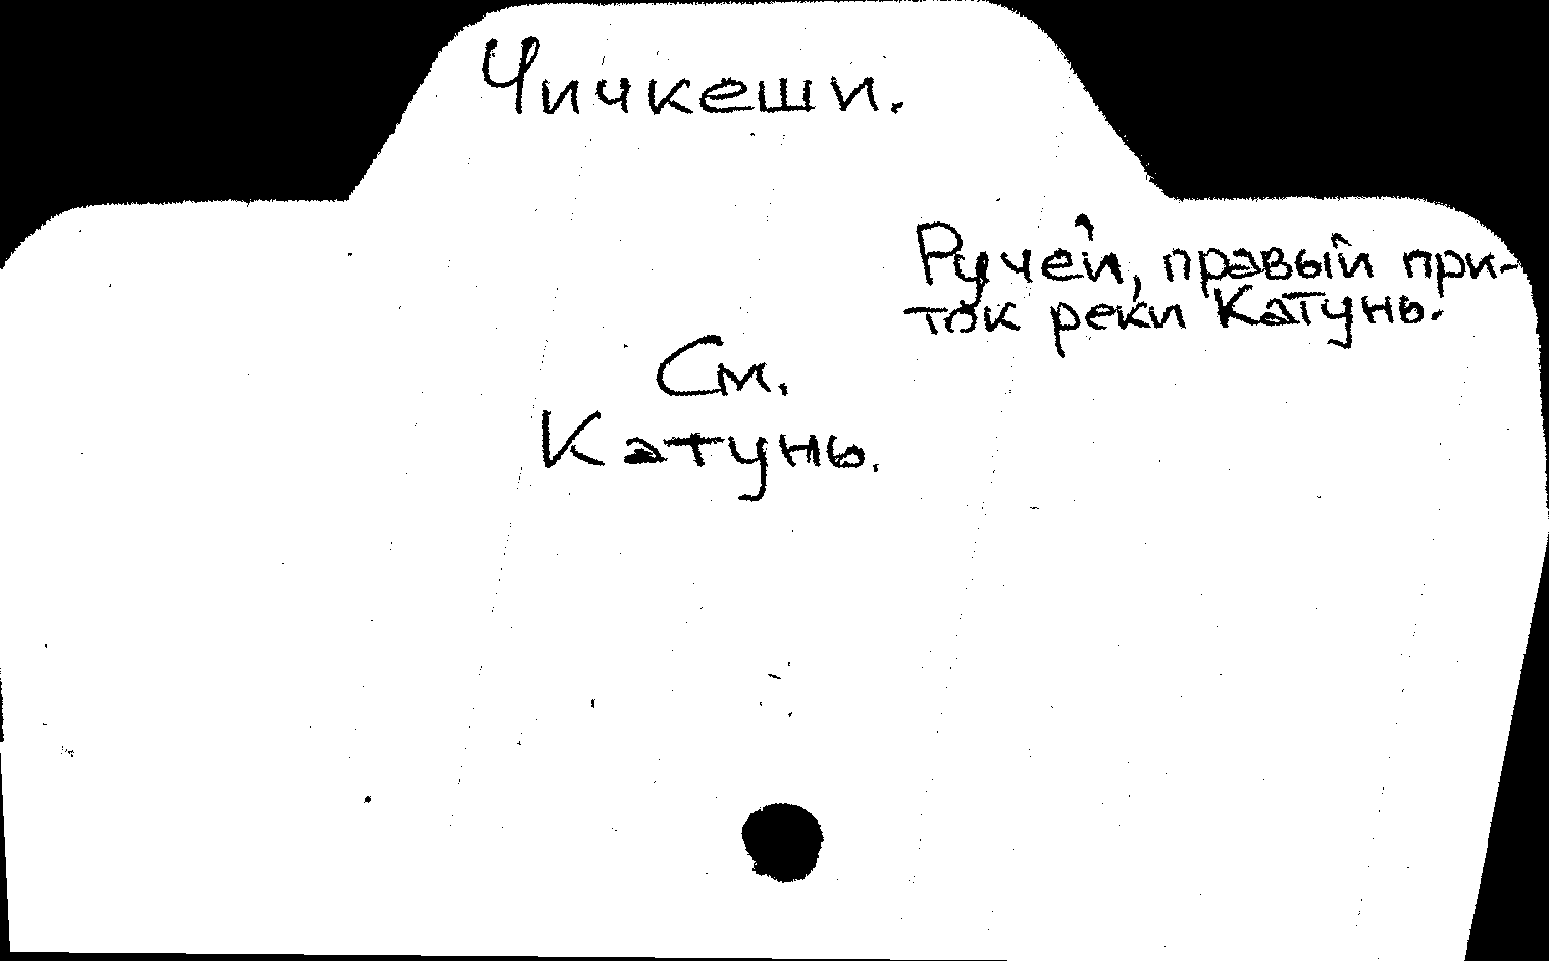 Чичкеши.
Ручей, правый при-
ток реки Катунь.
См.
Катунь.